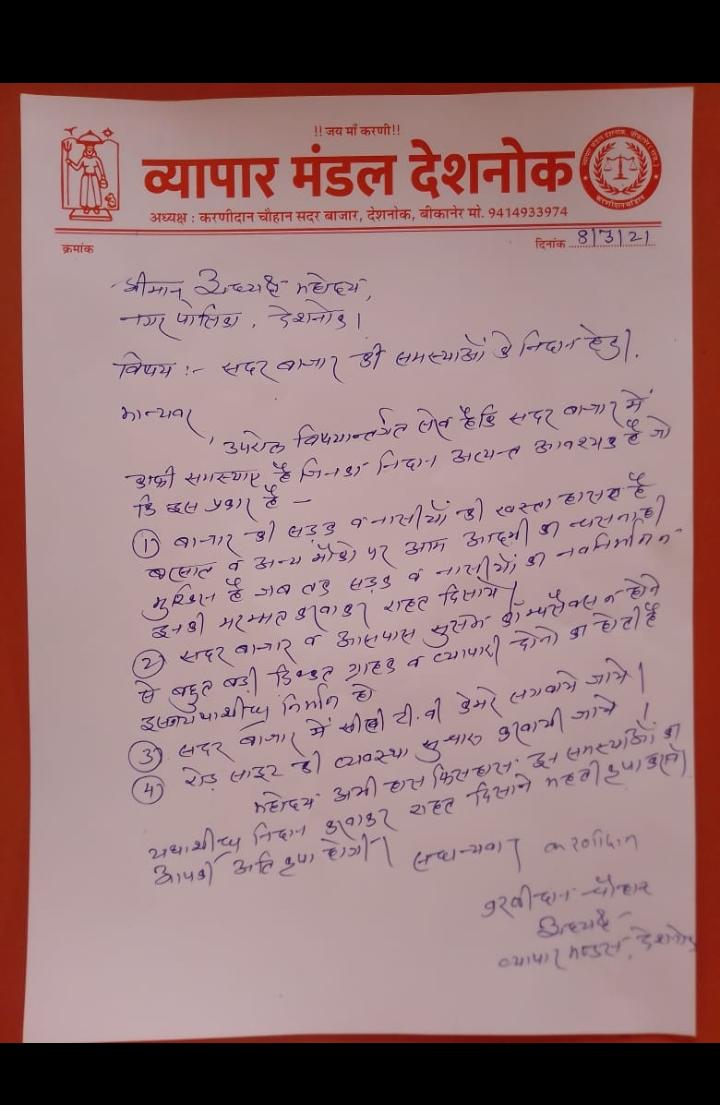 !! जय माँ करणी !!
व्यापार मंडल देशनोक
अध्यक्ष : करणीदान चौहान सदर बाजार, देशनोक, बीकानेर मो. 9414933974
क्रमांक
दिनांक 8/3/21
श्रीमान् अध्यक्ष महोदय,
नगर पालिका, देशनोक।
विषय :- सदर बाजार की समस्याओं के निदान हेतु।
मान्यवर,
उपरोक्त विषयान्तर्गत लेख है कि सदर बाजार में
काफी समस्याए है जिनका निदान अत्यन्त आवश्यक है जो
कि इस प्रकार है –
① बाजार की सड़क व नालीयों की खस्ता हालत है
बरसात व अन्य मौको पर आम आदमी का चलना ही
मुश्किल है जब तक सड़क व नालीयों का नवनिर्माण न
इनकी मरम्मत करवाकर राहत दिलाये।
② सदर बाजार व आसपास सुलभ कॉम्पलैक्स न होने
से बहुत बड़ी दिक्कत ग्राहक व व्यापारी दोनो को होती है
निर्माण हो
③ सदर बाजार में सीसी टी.वी केमरे लगवाये जाये।
④ रोड़ लाइट की व्यवस्था सुचारू करवायी जाये।
महोदय अभी हाल फिलहाल इन समस्याओं का
यथाशीघ्र निदान करवाकर राहत दिलाने महती कृपा करावे।
आपकी अति कृपा होगी। सधन्यवाद
करणीदान
करणीदान चौहान
अध्यक्ष
व्यापार मण्डल, देशनोक